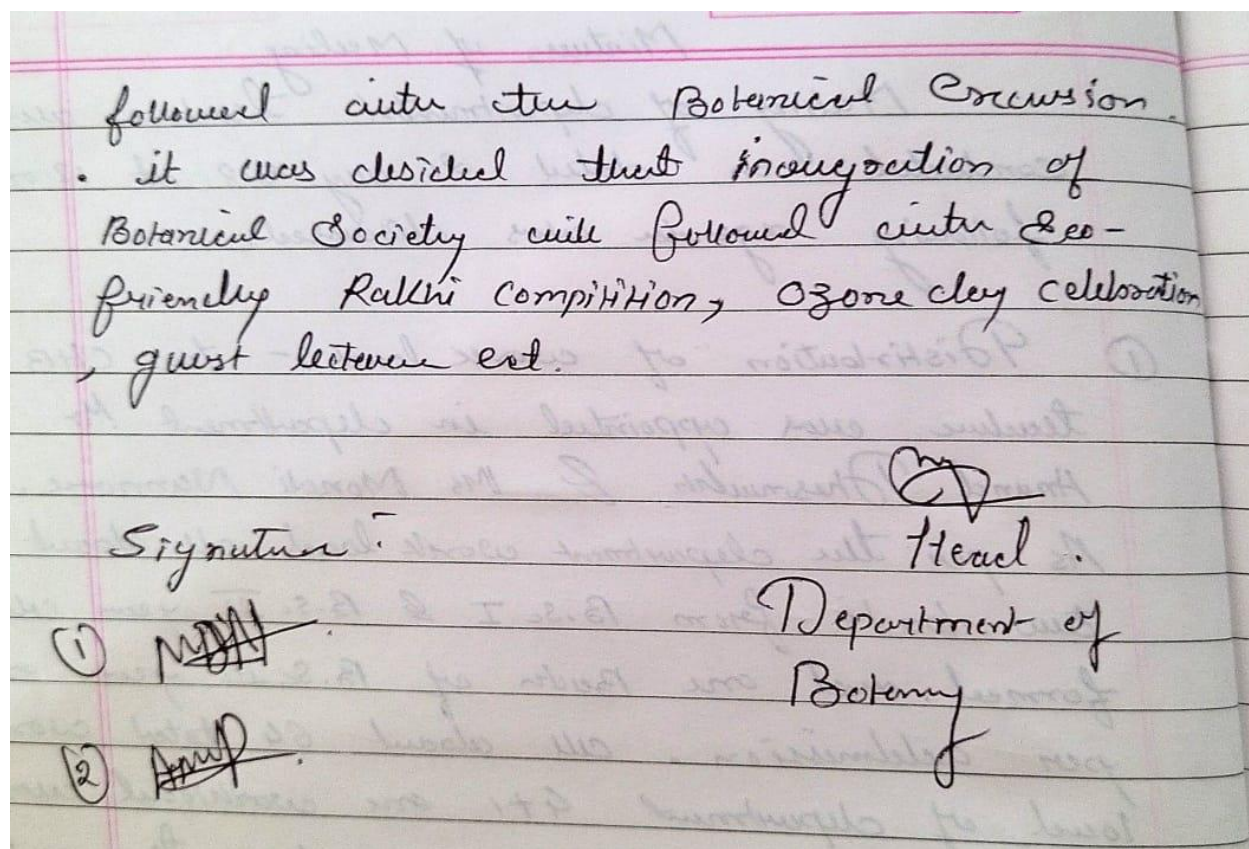 followed with the Botanical Excursion.
. it was desided that inaugration of
Botanical Society will followed with Eco-
friendly Rakhi compitition, Ozone day celebration
, guest lecture ect.
Signature :-
Head .
Department of
Botany
①
②